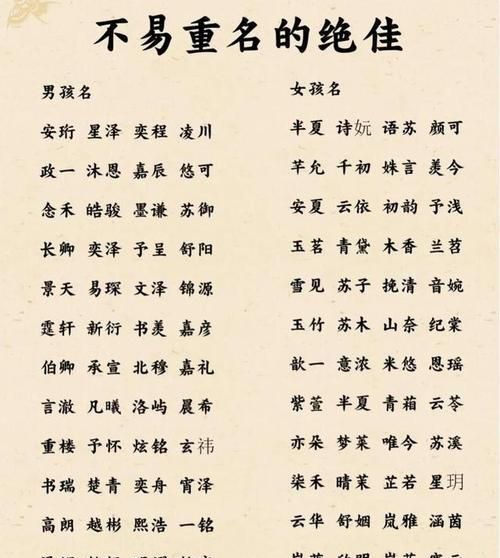 不易重名的绝佳
男孩名
安珩 星泽 奕程 凌川
政一 沐恩 嘉辰 悠可
念禾 皓骏 墨谦 苏御
长卿 奕泽 予呈 舒阳
景天 易琛 文泽 锦源
霆轩 新衍 书羡 嘉彦
伯卿 承宣 北穆 嘉礼
言澈 凡曦 洛屿 晨希
重楼 予怀 炫铭 玄祎
书瑞 楚青 奕舟 宵泽
高朗 越彬 熙浩 一铭
女孩名
半夏 诗妧 语苏 颜可
芊允 千初 姝言 羡今
安夏 云依 初韵 予浅
玉茗 青黛 木香 兰苕
雪见 苏子 挽清 音婉
玉竹 苏木 山奈 纪棠
歆一 意浓 米悠 恩瑶
紫萱 半夏 青葙 云苓
亦朵 梦茱 唯今 苏溪
柒禾 晴茱 芷若 星玥
云华 舒姻 岚雅 涵茵